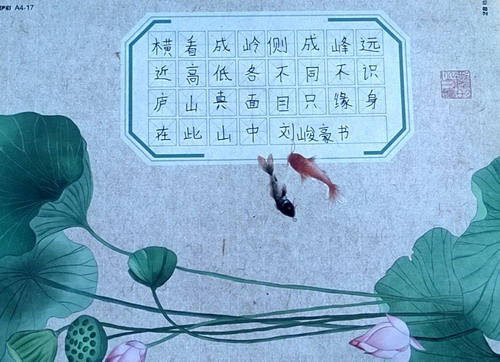 A4-17
横看成岭侧成峰远
近高低各不同不识
庐山真面目只缘身
在此山中 刘峻豪书